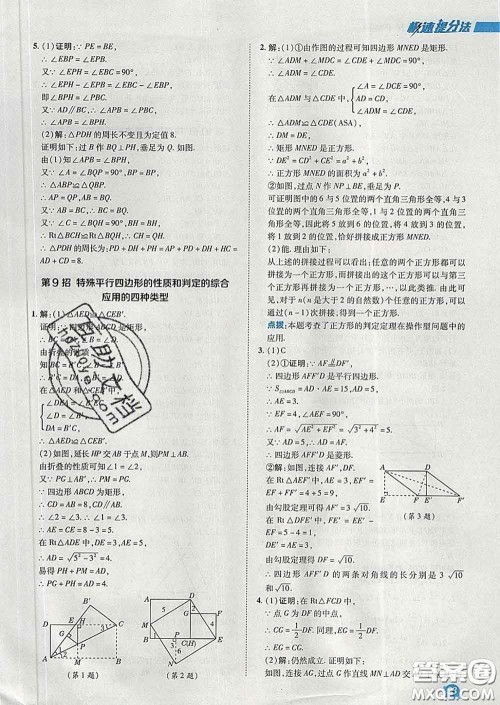 极速提分法
5. (1)证明：∵ PE = BE，
∴ ∠EBP = ∠EPB.
又∵ ∠EPH = ∠EBC = 90°，
∴ ∠EPH - ∠EPB = ∠EBC - ∠EBP，
即 ∠BPH = ∠PBC.
又∵ AD∥BC，∴ ∠APB = ∠PBC.
∴ ∠APB = ∠BPH.
(2)解：△PDH 的周长不变且为定值 8.
证明如下：过 B 作 BQ⊥PH，垂足为 Q.
由(1)知 ∠APB = ∠BPH，
又∵ ∠A = ∠BQP = 90°，BP = BP，
∴ △ABP≌△QBP.
∴ AP = QP，AB = QB.
又∵ AB = BC，∴ BC = BQ.
又∵ ∠C = ∠BQH = 90°，BH = BH，
∴ Rt△BCH≌Rt△BQH. ∴ CH = QH.
∴ △PDH 的周长为：PD + DH + PH = AP + PD + DH + HC = AD + CD = 8.
第 9 招 特殊平行四边形的性质和判定的综合
应用的四种类型
1. 解：(1)△AED≌△CEB′.
证明：∵ 四边形
由折叠的
∴ B′C = AD
在△AED 和△CEB′中，
∠DEA = ∠B′EC，
∠D = ∠B′，
DA = B′C，
∴ △AED≌△CEB′.
(2)如图，延长 HP 交 AB 于点 M，则 PM⊥AB.
由折叠的性质可知∠1 = ∠2.
又∵ PG⊥AB′，∴ PM = PG.
∵ 四边形 ABCD 为矩形，
∴ CD∥AB. ∴ ∠2 = ∠3.
∴ ∠1 = ∠3.
∴ AE = CE = 8 - 3 = 5.
在 Rt△ADE 中，DE = 3，
∴ AD = √5² - 3² = 4.
易得 PH + PM = AD，
∴ PG + PH = PH + PM = AD = 4.
(第 1 题)
(第 2 题)
2. 解：(1)①由作图的过程可知四边形 MNED 是矩形.
∵ ∠ADM + ∠MDC = ∠CDE + ∠MDC = 90°，
∴ ∠ADM = ∠CDE.
在△ADM 与△CDE 中，
∠A = ∠DCE = 90°，
AD = CD，
∠ADM = ∠CDE，
∴ △ADM≌△CDE(ASA).
∴ DM = DE.
∴ 矩形 MNED 是正方形.
∵ DE² = CD² + CE² = a² + b²，
∴ 正方形 MNED 的面积为 a² + b².
②如图，过点 N 作 NP⊥BE，垂足为 P，
可证明图中 6 与 5 位置的两个三角形全等，4 与 3
位置的两个三角形全等，2 与 1 位置的两个三角形
也全等.
所以将 6 放到 5 的位置，4 放到 3 的位置，2 放到 1
的位置，恰好拼接成正方形 MNED.
(2)能. 理由如下：
由上述的拼接过程可以看出：任意的两个正方形
都可以拼接为一个正方形，而拼接出的这个正方形
可以与第三个正方形再拼接为一个正方形，…，依
此类推. 由此可知：对于 n 个任意的正方形，都可以
通过(n - 1)次拼接，得到一个正方形.
点拨：本题考查了正方形的判定定理在操作型问题中的
应用.
3. (1)C
(2)①证明：∵ AF∥DF′，
∴ 四边形 AFF′D 是平行四边形.
∵ AE = 3.
∵ EF = 4，
∴ AF = √AE² + EF² = √3² + 4² = 5.
又∵ AD = 5，∴ AD = AF.
∴ 四边形 AFF′D 是菱形.
②解：如图，连接 AF′，DF.
在 Rt△AEF′中，AE = 3，EF′ = 9，
由勾股定理可得 AF′ = 3√10.
在 Rt△DFE′中，FE′ = 1，DE′ = 3，
由勾股定理可得 DF = √10.
∴ 四边形 AFF′D 的两条对角线的长分别是 3√10
和 √10.
(第 3 题)
4. (1)证明：在 Rt△FCD 中，
∵ 点 G 为 DF 的中点，
∴ CG = 1/2 DF. 同理，EG = 1/2 DF.
∴ CG = EG.
(2)解：仍然成立. 证明如下：
如图，连接 AG，过点 G 作直线 MN⊥AD 交